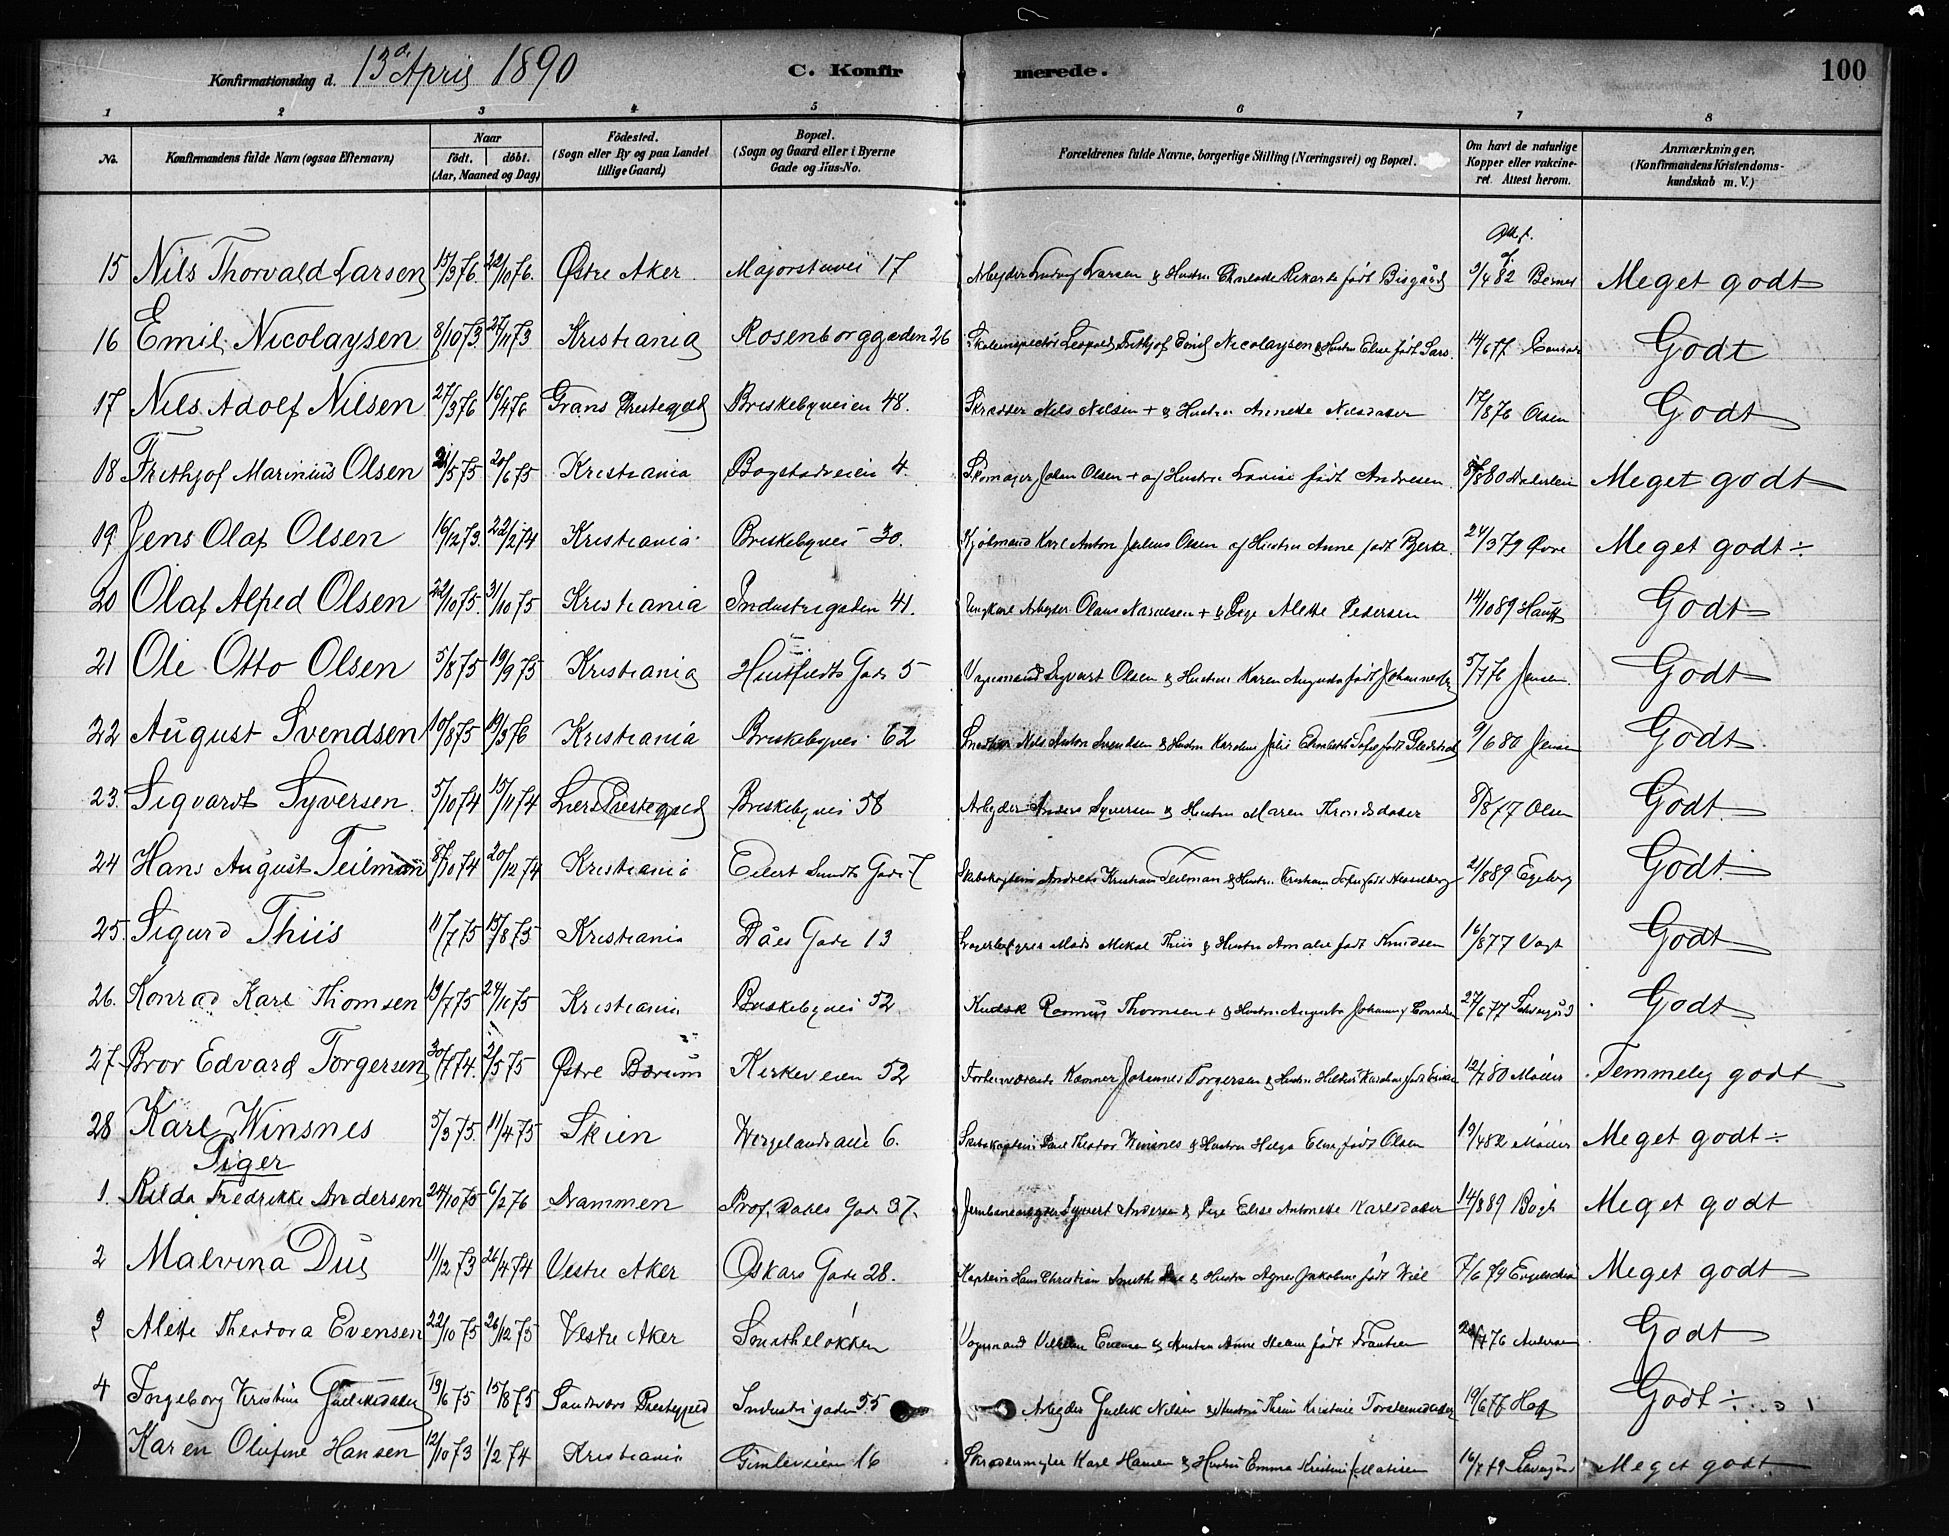 Konfirmationsdag d. 13de April 1890 C. Konfirmerede. 100
1 2 3 4 5 6 7 8
No. Konfirmandens fulde Navn (ogsaa Efternavn) Naar født. døbt. (Aar, Maaned og Dag) Födested. (Sogn eller By og paa Landet tillige Gaard) Bopæl. (Sogn og Gaard eller i Byerne Gade og Hus-No. Forældrenes fulde Navne, borgerlige Stilling (Næringsvei) og Bopæl. Om havt de naturlige Kopper eller vakcineret. Attest herom. Anmærkninger. (Konfirmandens Kristendomskundskab m. V.)
15 Nils Thorvald Larsen 15/3 76. 22/10 76. Østre Aker. Majorstuvei 17 Arbeider Ludvig Larsen & Hustru Charlotte Rikarda født Bisgård 9/4 82 Berner Meget godt
16 Emil Nicolaysen 8/10 73 27/11 73 Kristiania Rosenborggaden 26 Skoleinspectør Leopold Frithjof Emil Nicolaysen & Hustru Elise født Sars. 14/6 77 Godt
17 Nils Adolf Nilsen 27/3 76 16/4 76 Grans Prestegjeld Briskebyveien 48. Skrædder Nils Nilsen + & Hustru Annette Nilsdatter 17/8 76 Olsen Godt
18 Frithjof Marinius Olsen 21/5 75 20/6 75 Kristiania Bogstadveien 4. Skomager Johan Olsen + af Hustru Lovise født Andresen. 8/80 Meget godt
19 Jens Olaf Olsen 16/12 73. 22/2 74 Kristiania Briskebyvei 30. Kjølmand Karl Anton Julius Olsen af Hustru Anne født Bjerke. 24/3 79 Øvre Meget godt ÷
20 Olaf Alfred Olsen 22/10 75 31/10 75 Kristiania Industrigaden 41. Ungkarl Arbeider Olaus + & Pige Alette Pedersen 14/10 89 Hauff Godt
21 Ole Otto Olsen 5/8 75 19/9 75 Kristiania Huitfeldts Gade 5 Vognmand Syvert Olsen & Hustru Karen Augusta født Johannesen 5/1 76 Jensen. Godt
22 August Svendsen 10/8 75 19/3 76 Kristiania Briskebyvei 62 Nils Anton Svendsen & Hustru Karoline Julie Elisabeth Sofie født 9/6 80 Jensen Godt
23. Sigvardt Syversen 5/10 74 15/11 74 Liers Prestegjeld Briskebyvei 58 Arbeider Anders Syversen & Hustru Maren Throndsdatter 8/8 77 Olsen Godt
24 Hans August Teilman 8/10 74 20/12 74 Kristiania Eilert Sundts Gade 7 Skibskaptein Andreas Kristian Teilman & Hustru Kristiane Sofie født Hesselberg 21/8 89 Egeberg Godt
25 Sigurd Thiis 11/7 75 15/8 75 Kristiania Daes Gade 13 Mads Mikal Thiis & Hustru Amalie født Knudsen 16/8 77 Vogt Godt
26. Konrad Karl Thomsen 19/7 75 24/10 75 Kristiania Briskebyvei 52 Kudsk Rasmus Thomsen + & Hustru Augusta Johanne f Conradsen 27/6 77 Godt
27 Bror Edvard Torgersen 30/7 74. 2/5 75 Østre Bærum Kirkeveien 52 Johannes Torgersen & Hustru Karoline født 12/7 80 Møller Temmelig godt
28 Karl Winsnes 5/3 75 11/4 75 Skien Wergelands allé 6. Skibskaptein Paul Theodor Winsnes & Hustru Helga Elise født Olsen 19/4 82 Møller Meget godt ÷
Piger
1. Hilda Fredrikke Andersen 24/10 75 6/2 76 Drammen Prof. Dahls Gade 37. Jernbanearbeider Syvert Andersen & Pige Elise Antonette Karlsdatter 14/8 89 Bogh Meget godt
2 Malvina Due 11/12 73 26/4 74 Vestre Aker Oskars Gade 28. Kaptein Hans Christian Smith Due & Hustru Agnes Jakobine født Wiel 7/6 79 Meget godt
3 Alette Theodora Evensen 22/10 75 26/12 75 Vestre Aker Smatheløkken Vognmand Evensen & Hustru Anne født Frantsen 76 Godt
4 Ingeborg Kristine Gulliksdatter 19/6 75 15/8 75 Sandsvær Prestegjeld Industrigaden 55 Arbeider Gullik Nilsen & Hustru Kristine Torstensdatter 19/6 77 Hof Godt ÷
Karen Olufine Hansen 12/10 73 1/2 74 Kristiania Gimleveien 16 Skrædermester Karl Hansen & Hustru Emma Kristine f Mathisen 16/7 79 Meget godt